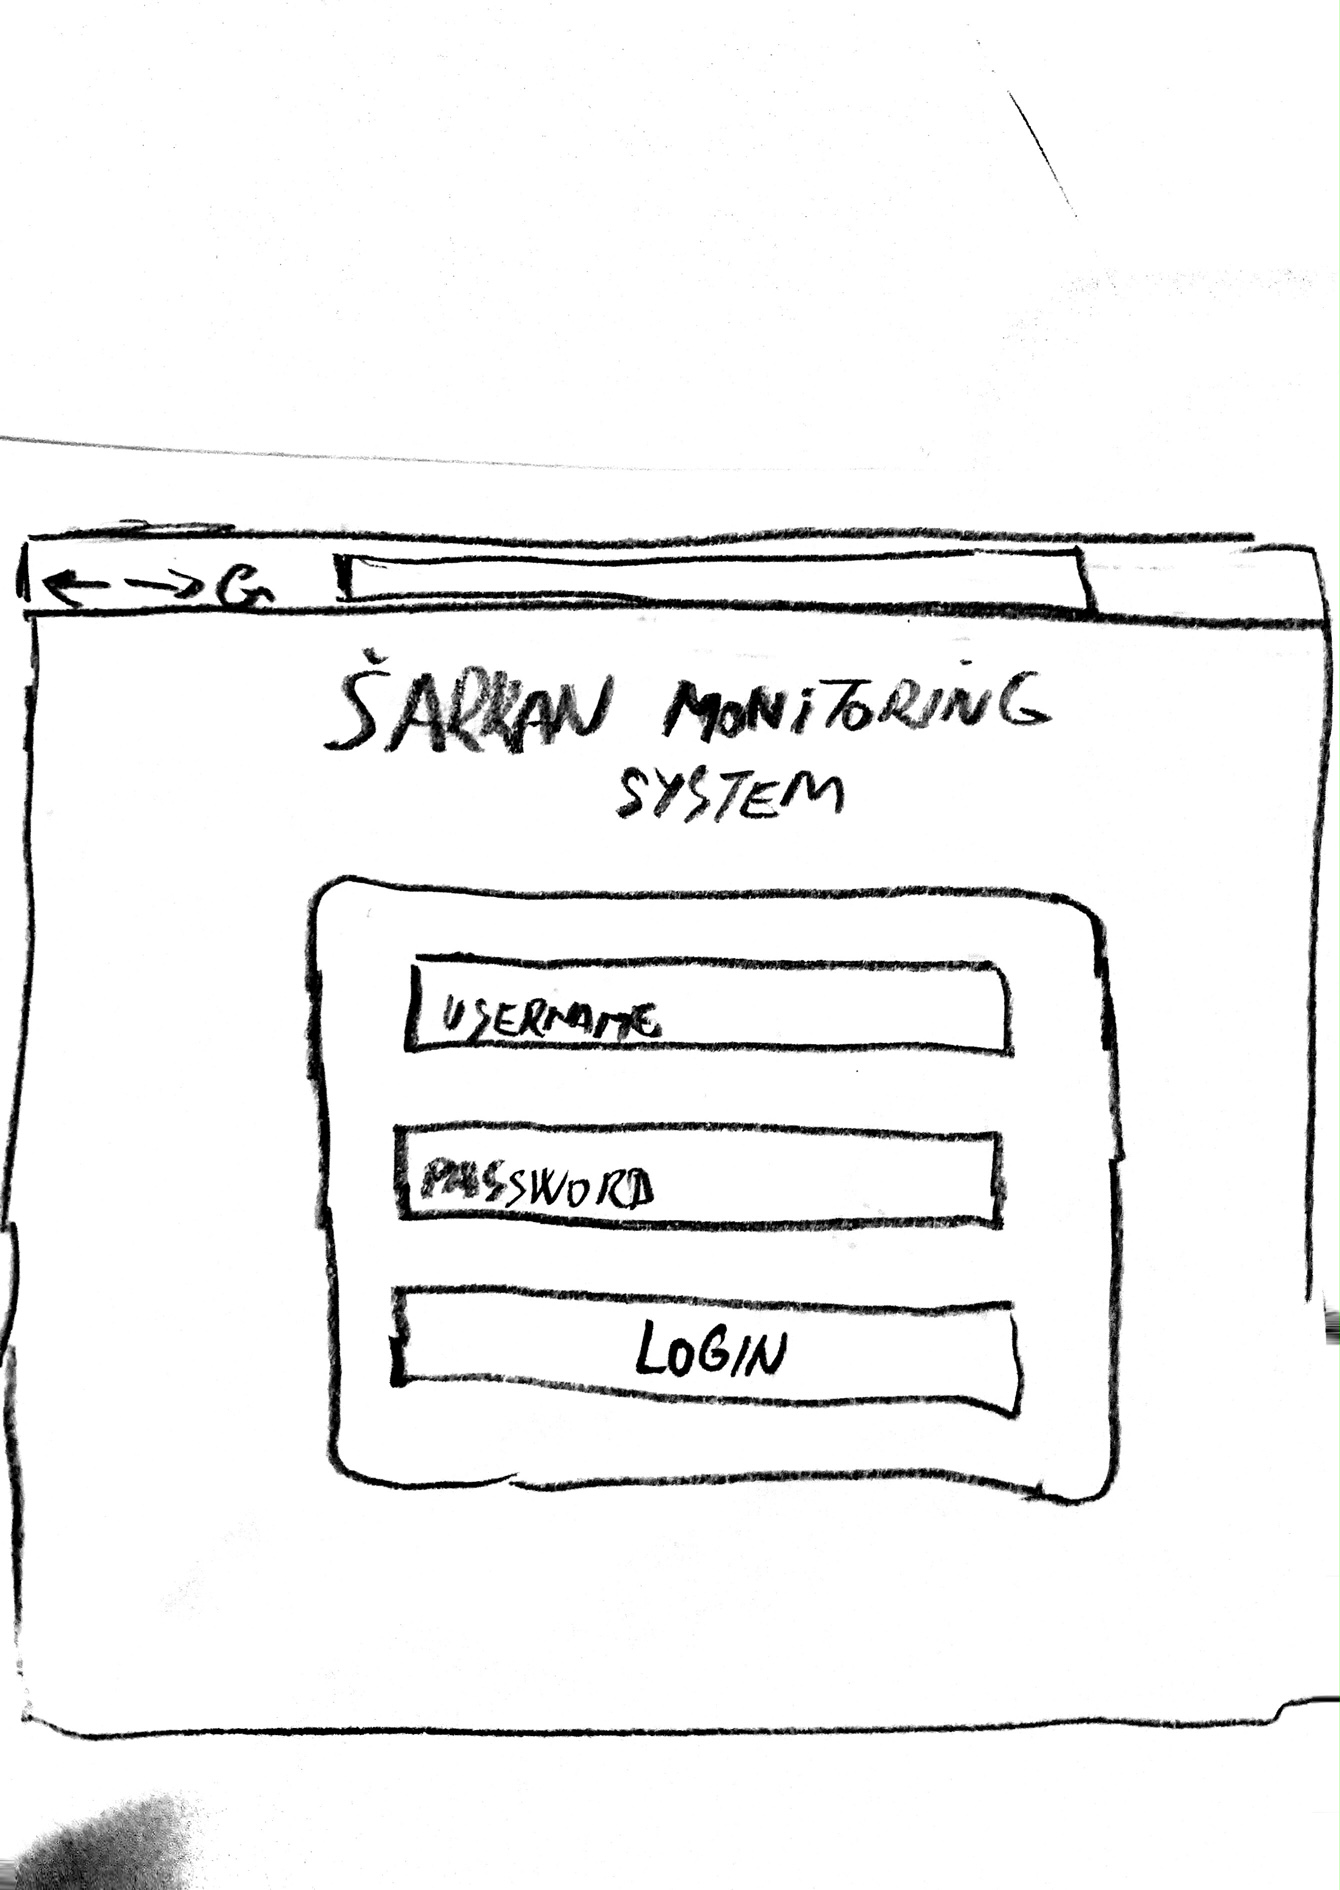 ŠARKAN MONITORING
SYSTEM
USERNAME
PASSWORD
LOGIN